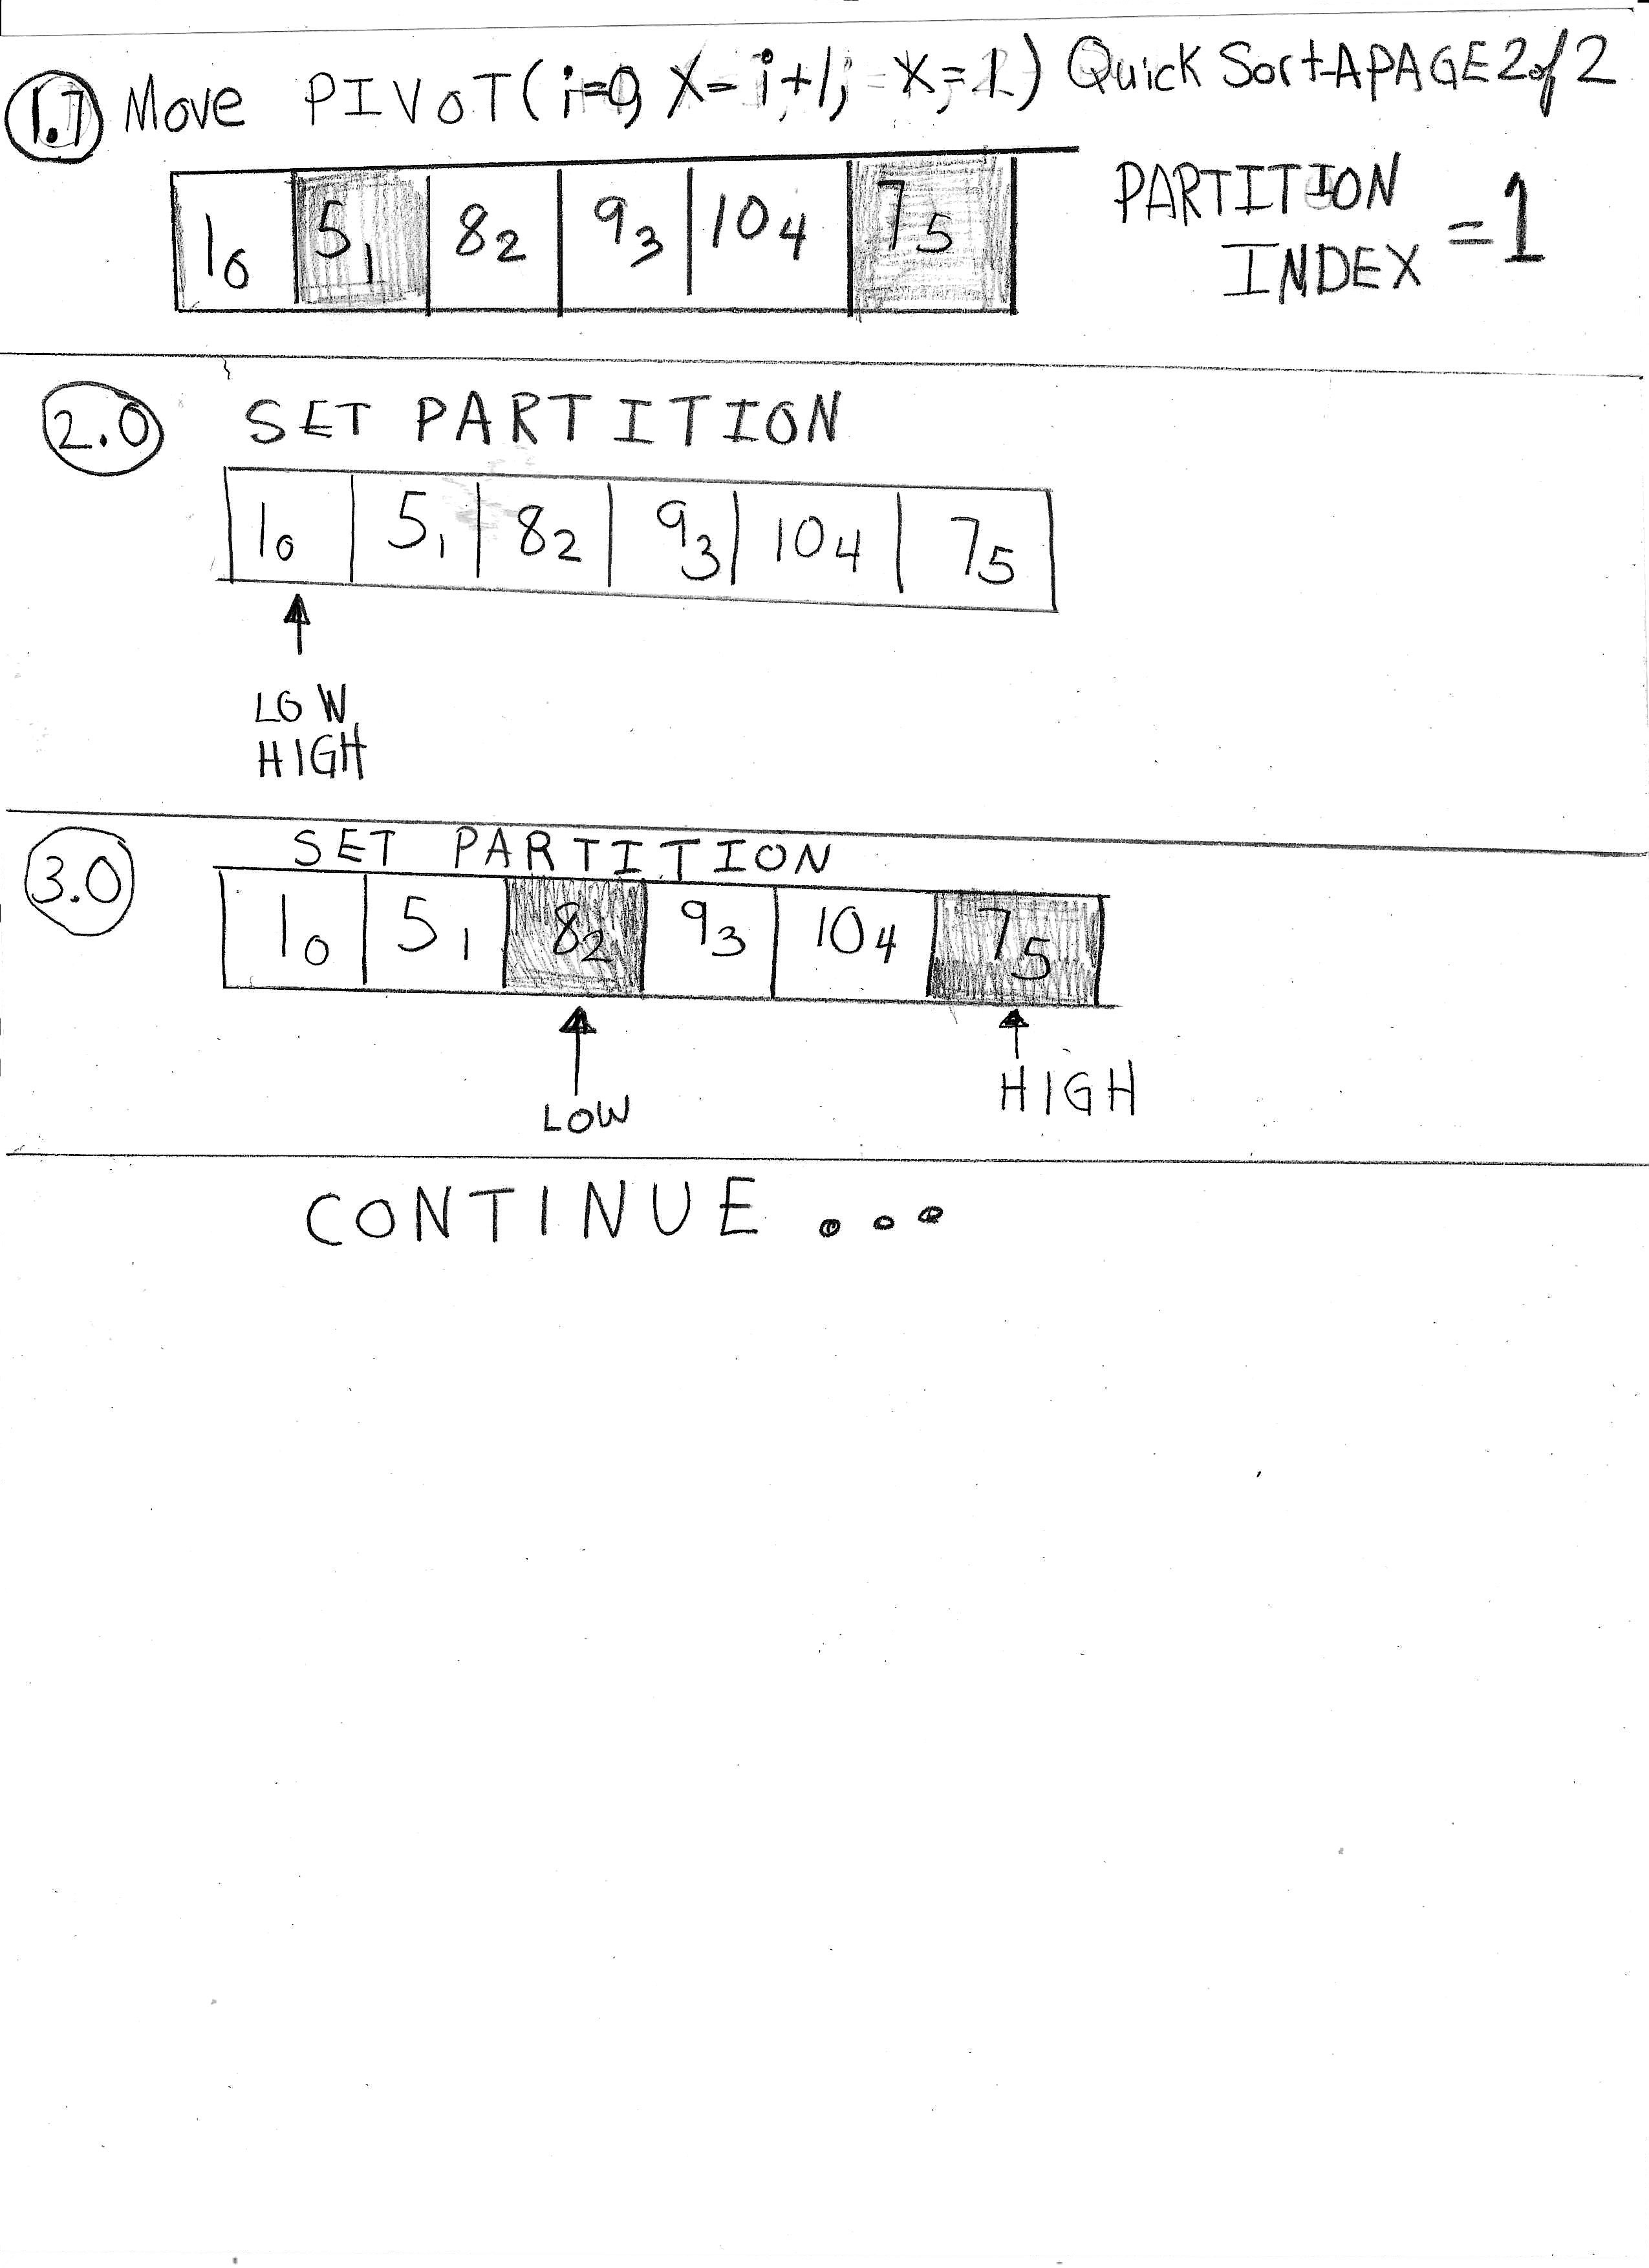 1.7 Move PIVOT(i=0, X=i+1; X=1) Quick Sort-A PAGE 2 of 2
1₀ 5₁ 8₂ 9₃ 10₄ 7₅ PARTITION INDEX = 1
2.0 SET PARTITION
1₀ 5₁ 8₂ 9₃ 10₄ 7₅
LOW
HIGH
3.0 SET PARTITION
1₀ 5₁ 8₂ 9₃ 10₄ 7₅
LOW HIGH
CONTINUE...